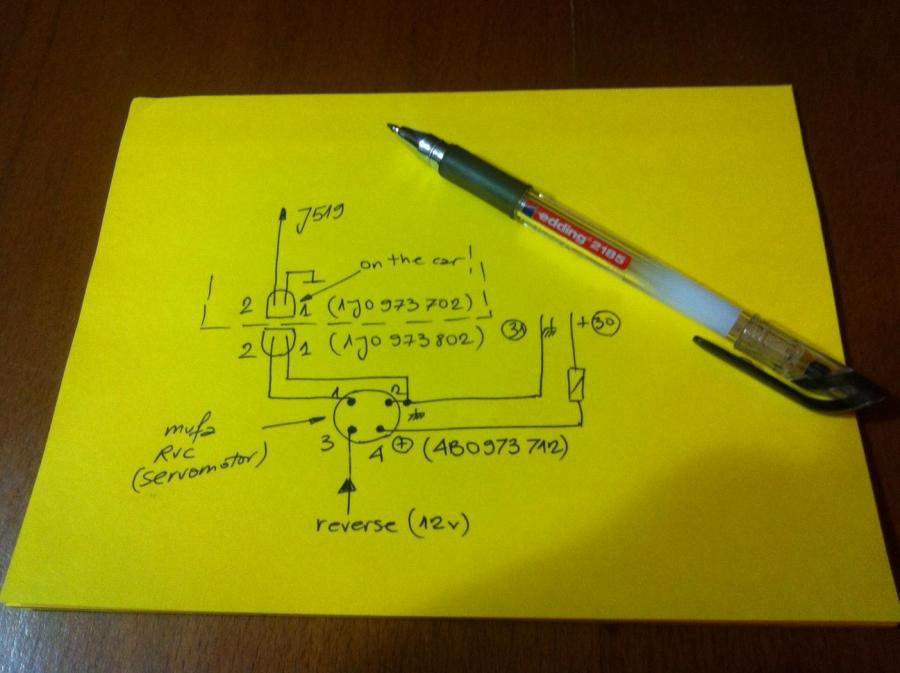 J519
on the car!
2 1 (1J0 973 702)
2 1 (1J0 973 802)
31 + 30
1 2
3 4 + (4B0 973 712)
RVC
(servomotor)
reverse (12v)
edding 2185